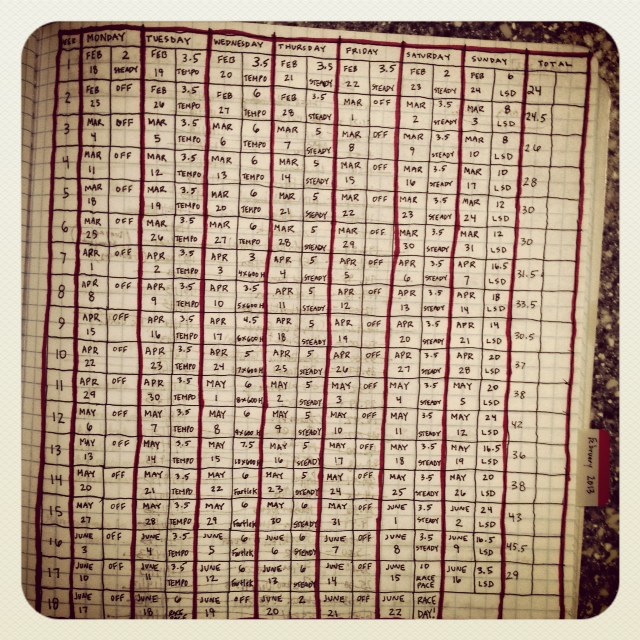 WEEK MONDAY TUESDAY WEDNESDAY THURSDAY FRIDAY SATURDAY SUNDAY TOTAL
1 FEB 2 FEB 3.5 FEB 3.5 FEB 3.5 FEB 3.5 FEB 2 FEB 6 24
18 STEADY 19 TEMPO 20 TEMPO 21 STEADY 22 STEADY 23 STEADY 24 LSD
2 FEB OFF FEB 3.5 FEB 6 FEB 3.5 MAR OFF MAR 3.5 MAR 8 24.5
25 26 TEMPO 27 TEMPO 28 STEADY 1 2 STEADY 3 LSD
3 MAR OFF MAR 3.5 MAR 6 MAR 5 MAR OFF MAR 3.5 MAR 8 26
4 5 TEMPO 6 TEMPO 7 STEADY 8 9 STEADY 10 LSD
4 MAR OFF MAR 3.5 MAR 6 MAR 5 MAR OFF MAR 3.5 MAR 10 28
11 12 TEMPO 13 TEMPO 14 STEADY 15 16 STEADY 17 LSD
5 MAR OFF MAR 3.5 MAR 6 MAR 5 MAR OFF MAR 3.5 MAR 12 30
18 19 TEMPO 20 TEMPO 21 STEADY 22 23 STEADY 24 LSD
6 MAR OFF MAR 3.5 MAR 6 MAR 5 MAR OFF MAR 3.5 MAR 12 30
25 26 TEMPO 27 TEMPO 28 STEADY 29 30 STEADY 31 LSD
7 APR OFF APR 3.5 APR 3 APR 5 APR OFF APR 3.5 APR 16.5 31.5
1 2 TEMPO 3 4x600H 4 STEADY 5 6 STEADY 7 LSD
8 APR OFF APR 3.5 APR 3.5 APR 5 APR OFF APR 3.5 APR 18 33.5
8 9 TEMPO 10 5x600H 11 STEADY 12 13 STEADY 14 LSD
9 APR OFF APR 3.5 APR 4.5 APR 5 APR OFF APR 3.5 APR 14 30.5
15 16 TEMPO 17 6x600H 18 STEADY 19 20 STEADY 21 LSD
10 APR OFF APR 3.5 APR 5 APR 5 APR OFF APR 3.5 APR 20 37
22 23 TEMPO 24 7x600H 25 STEADY 26 27 STEADY 28 LSD
11 APR OFF APR 3.5 MAY 6 MAY 5 MAY OFF MAY 3.5 MAY 20 38
29 30 TEMPO 1 8x600H 2 STEADY 3 4 STEADY 5 LSD
12 MAY OFF MAY 3.5 MAY 6 MAY 5 MAY OFF MAY 3.5 MAY 24 42
6 7 TEMPO 8 9x600H 9 STEADY 10 11 STEADY 12 LSD
13 MAY OFF MAY 3.5 MAY 7.5 MAY 5 MAY OFF MAY 3.5 MAY 16.5 36
13 14 TEMPO 15 10x600H 16 STEADY 17 18 STEADY 19 LSD
14 MAY OFF MAY 3.5 MAY 6 MAY 5 MAY OFF MAY 3.5 MAY 20 38
20 21 TEMPO 22 Fartlek 23 STEADY 24 25 STEADY 26 LSD
15 MAY OFF MAY 3.5 MAY 6 MAY 6 MAY OFF JUNE 3.5 JUNE 24 43
27 28 TEMPO 29 Fartlek 30 STEADY 31 1 STEADY 2 LSD
16 JUNE OFF JUNE 3.5 JUNE 6 JUNE 6 JUNE OFF JUNE 3.5 JUNE 16.5 45.5
3 4 TEMPO 5 Fartlek 6 STEADY 7 8 STEADY 9 LSD
17 JUNE OFF JUNE 3.5 JUNE 6 JUNE 6 JUNE OFF JUNE 10 JUNE 3.5 29
10 11 TEMPO 12 Fartlek 13 STEADY 14 15 RACE PACE 16 LSD
18 JUNE OFF JUNE 6 JUNE OFF JUNE 2 JUNE OFF JUNE RACE
17 18 RACE 19 20 21 22 DAY!
February 2013